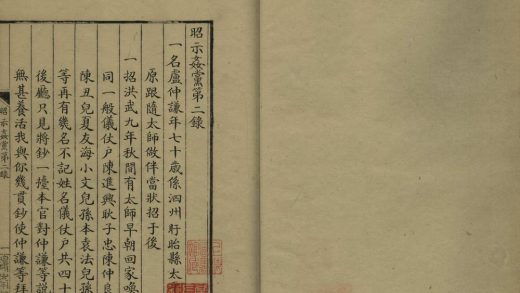 昭示姦黨第二錄
一名盧仲謙年七十歲係泗州盱眙縣太
原跟隨太師做伴當狀招于後
一招洪武九年秋間有太師早朝回家喚
同一般儀仗戶陳進興耿子忠陳仲良
陳丑兒夏友海小文兒孫本袁法兒孫
等再有幾名不記姓名儀仗戶共四十
後廳只見將鈔一擡本官對仲謙等說
無甚養活我與你幾貫鈔使仲謙等拜
昭示姦黨第二錄
一